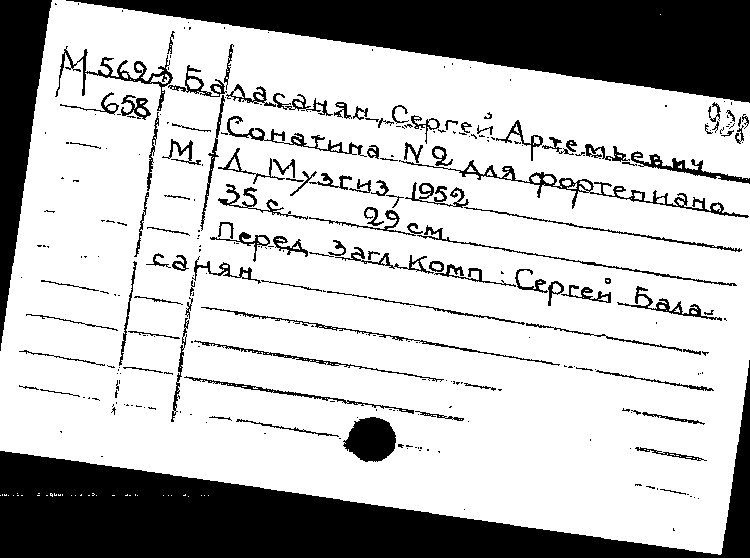 М 5623 Баласанян, Сергей Артемьевич 938
658 Сонатина N 2 для фортепиано
М.-Л, Музгиз, 1952
35 с. 29 см.
Перед загл. комп : Сергей Бала-
санян.